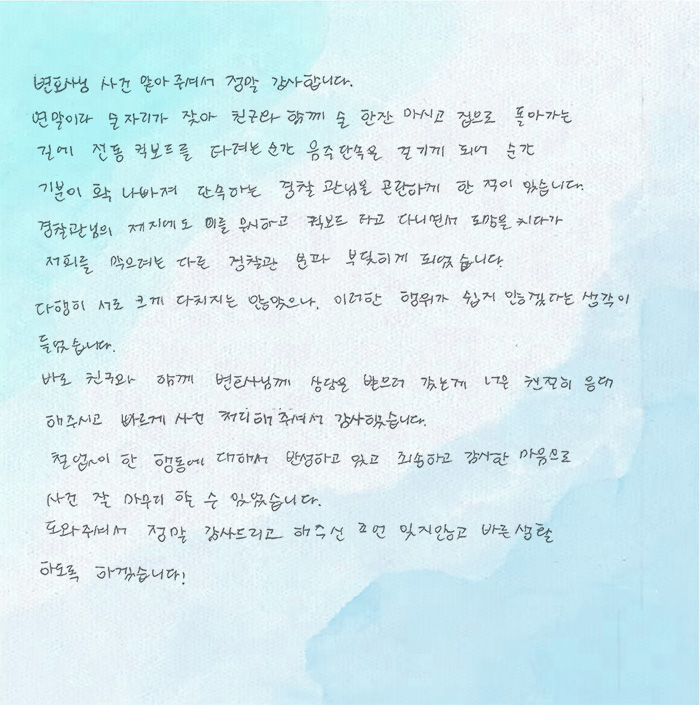 변호사님 사건 맡아주셔서 정말 감사합니다.
연말이다 술자리가 잦아 친구와 함께 술 한잔 마시고 집으로 돌아가는
길에 전동 퀵보드를 타려는 순간 음주단속을 걸리게 되어 순간
기분이 확 나빠져 단속하는 경찰 관님을 곤란하게 한 적이 있습니다.
경찰관님의 제지에도 이를 무시하고 퀵보드 타고 다니면서 도망을 치다가
저희를 막으려는 다른 경찰관 분과 부딪히게 되었습니다.
다행히 서로 크게 다치지는 않았으나, 이러한 행위가 쉽지 않겠다는 생각이
들었습니다.
바로 친구와 함께 변호사님께 상담을 받으러 갔는데 너무 친절히 응대
해주시고 빠르게 사건 처리해 주셔서 감사했습니다.
철없이 한 행동에 대해서 반성하고 있고 죄송하고 감사한 마음으로
사건 잘 마무리 할 수 있었습니다.
도와주셔서 정말 감사드리고 해주신 조언 잊지않고 바른생활
하도록 하겠습니다!